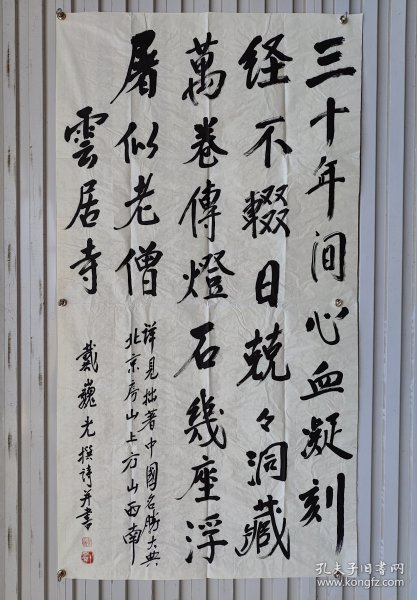 三十年间心血凝刻
经不辍日兢々洞藏
萬卷傳燈石幾座浮
屠似老僧
雲居寺
詳見拙著中國名勝大典
北京房山上方山西南
戴巍光撰詩并書
孔夫子旧书网
www.kongfz.com